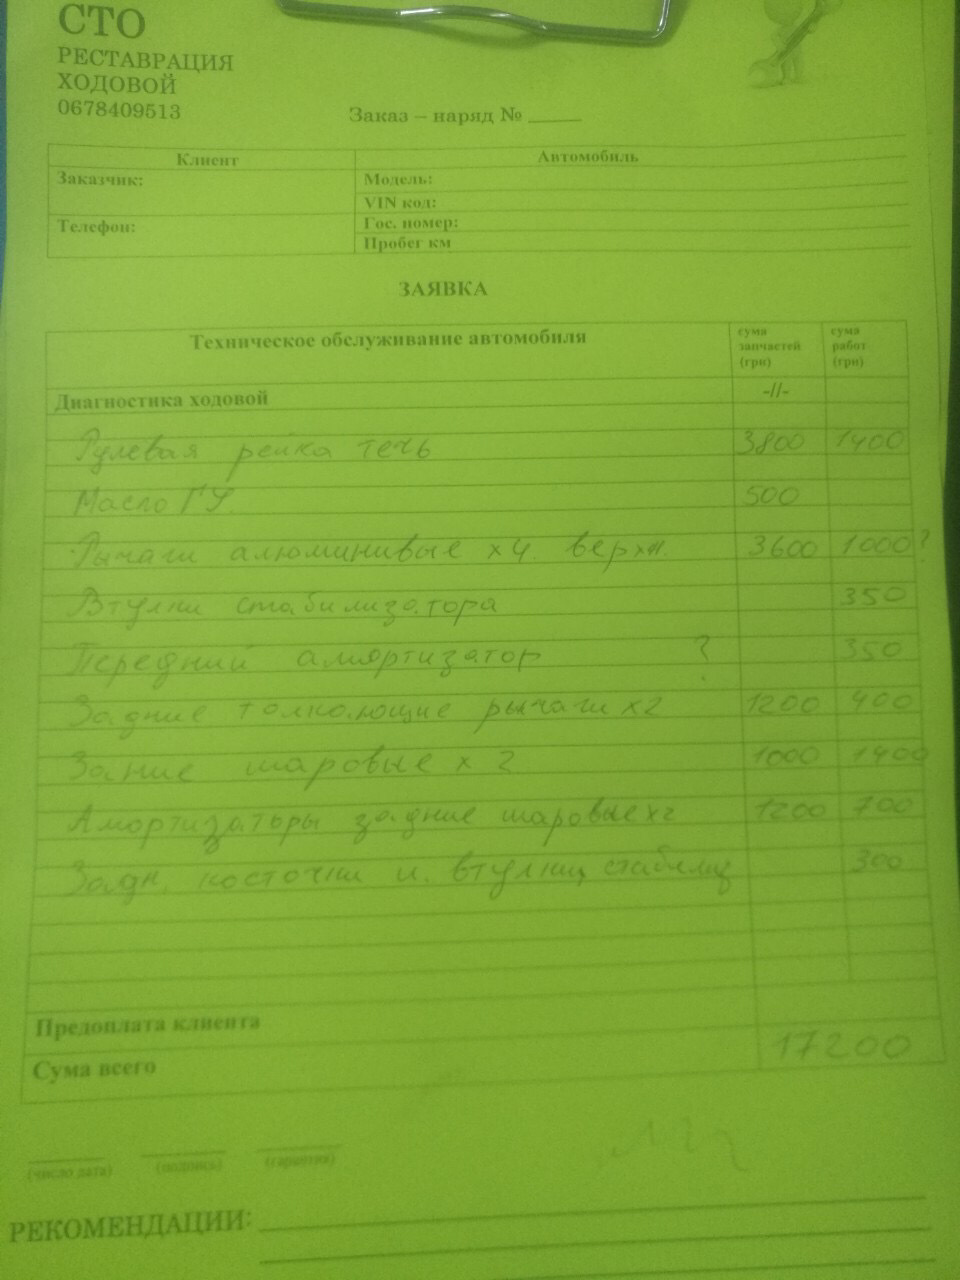 СТО
РЕСТАВРАЦИЯ
ХОДОВОЙ
0678409513
Заказ – наряд № _____
Клиент Автомобиль
Заказчик: Модель:
VIN код:
Телефон: Гос. номер:
Пробег км
ЗАЯВКА
Техническое обслуживание автомобиля сума запчастей (грн) сума работ (грн)
Диагностика ходовой -//-
Рулевая рейка течь 3800 1400
Масло ГУ. 500
Рычаги алюминивые х4. верхн. 3600 1000?
Втулки стабилизатора 350
Передний амортизатор ? 350
Задние толкающие рычаги х2 1200 400
Зание шаровые х 2 1000 1400
Амортизаторы задние шаровые х2 1200 700
Задн. косточки и. втулки стабилиз 300
Предоплата клиента
Сума всего 17200
(число дата) (подпись) (гарантия)
РЕКОМЕНДАЦИИ: